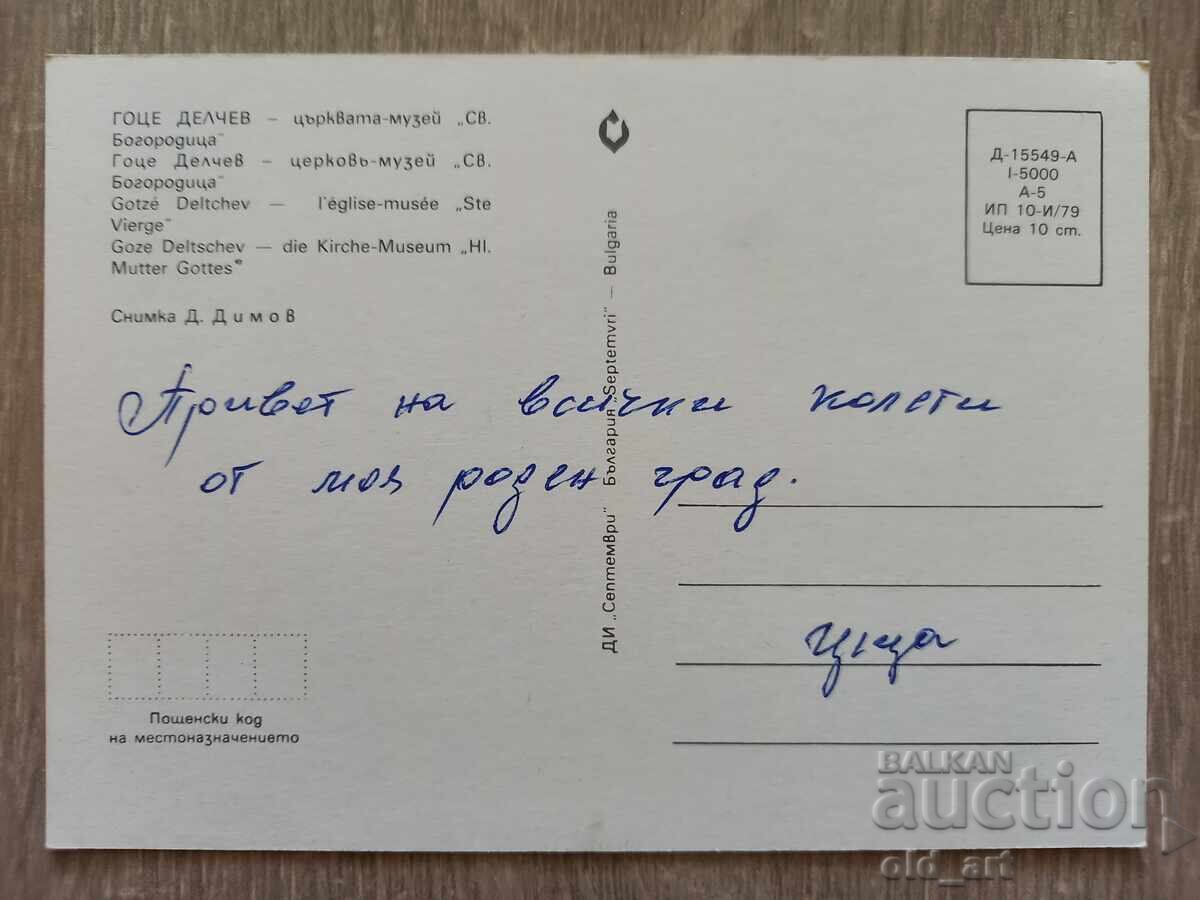 ГОЦЕ ДЕЛЧЕВ – църквата-музей „Св.
Богородица"
Гоце Делчев – церковь-музей „Св.
Богородица"
Gotzé Deltchev — l'église-musée „Ste
Vierge"
Goze Deltschev — die Kirche-Museum „Hl.
Mutter Gottes"
Снимка Д. Димов
Привет на всички колеги
от моя роден град.
Пощенски код
на местоназначението
ДИ „Септември" България „Septemvri" – Bulgaria
Д-15549-А
I-5000
А-5
ИП 10-И/79
Цена 10 ст.
BALKAN
auction
old_art